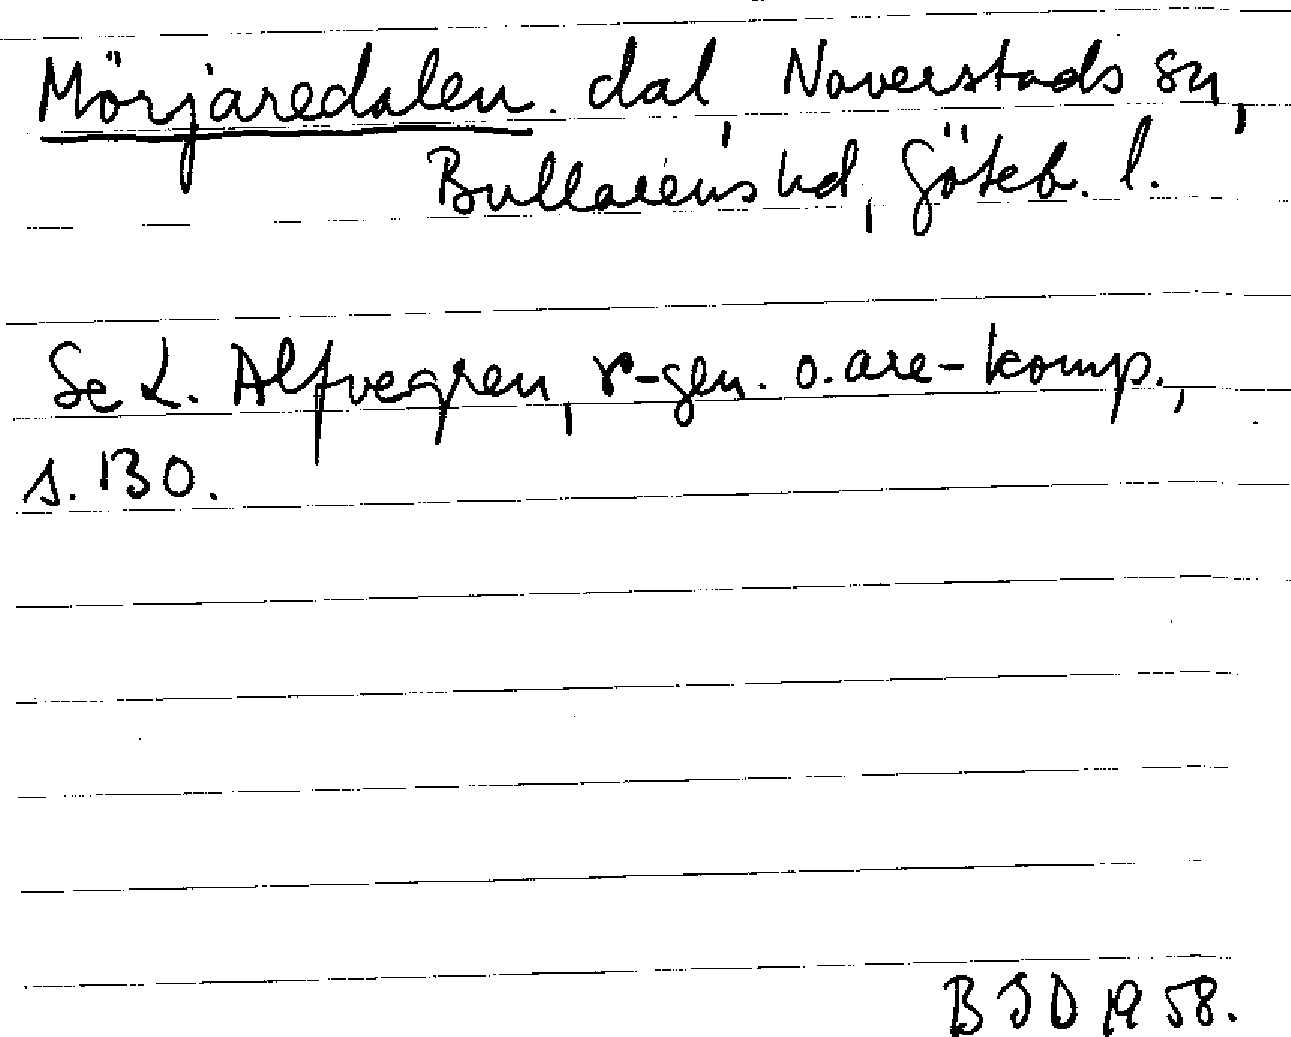 Mörjaredalen. dal, Naverstads sn,
Bullarens hd, Göteb. l.
Se L. Alfvegren, r-gen. o. are-komp.,
s. 130.
B J D 1958.